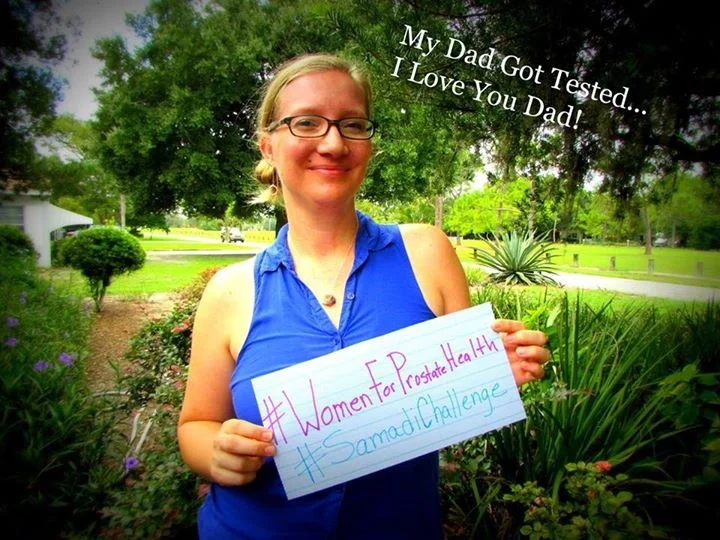 My Dad Got Tested...
I Love You Dad!
#WomenForProstateHealth
#SamadiChallenge